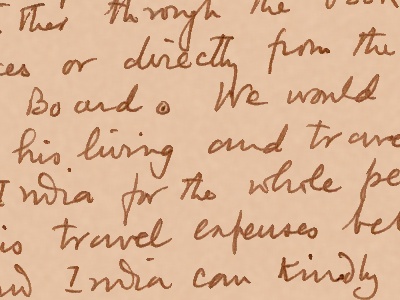 Ther through the
or directly from the
Board. We would
his living and trave
India for the whole pe
travel expenses bet
India can kindly